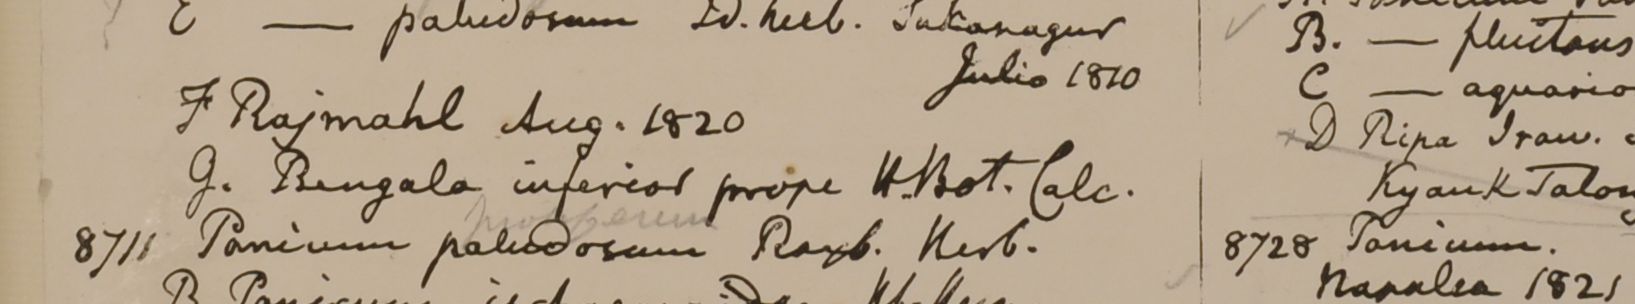 E — paludosum Id. herb.
Julio 1810
F Rajmahl Aug. 1820
G. Bengala inferior prope H. Bot. Calc.
8711 Panicum paludosum Roxb. Herb.
B Panicum
B. — fluitans
C —
D Ripa Iraw.
Kyauk
8728 Panicum.
Napalea 1821